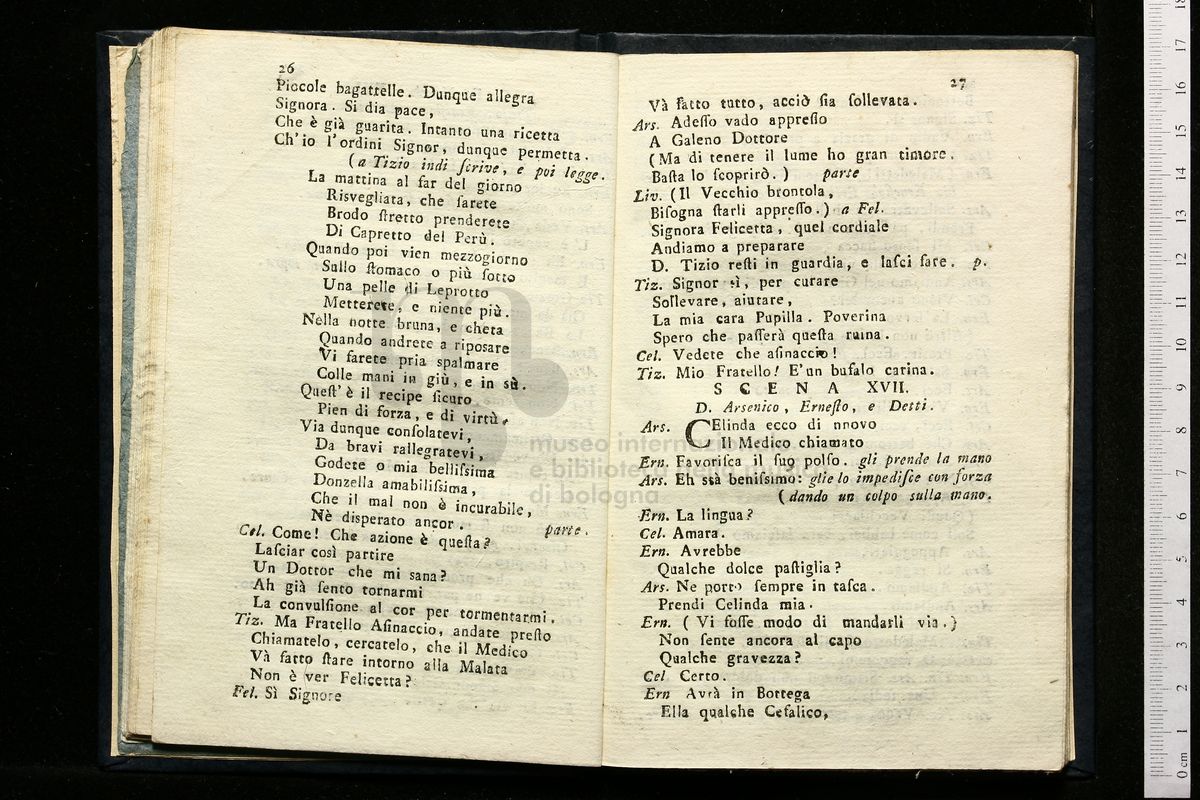 26
Piccole bagattelle. Dunque allegra
Signora. Si dia pace,
Che è già guarita. Intanto una ricetta
Ch'io l'ordini Signor, dunque permetta.
(a Tizio indi ſcrive, e poi legge.
La mattina al far del giorno
Risvegliata, che ſarete
Brodo ſtretto prenderete
Di Capretto del Perù.
Quando poi vien mezzogiorno
Sullo ſtomaco o più ſotto
Una pelle di Leprotto
Metterete, e niente più.
Nella notte bruna, e cheta
Quando andrete a ripoſare
Vi farete pria spalmare
Colle mani in giù, e in sù.
Queſt' è il recipe ſicuro
Pien di forza, e di virtù,
Via dunque conſolatevi,
Da bravi rallegratevi,
Godete o mia belliſsima
Donzella amabiliſsima,
Che il mal non è incurabile,
Nè disperato ancor. parte.
Cel. Come! Che azione è queſta?
Laſciar così partire
Un Dottor che mi sana?
Ah già ſento tornarmi
La convulſione al cor per tormentarmi.
Tiz. Ma Fratello Aſinaccio, andate preſto
Chiamatelo, cercatelo, che il Medico
Và fatto ſtare intorno alla Malata
Non è ver Felicetta?
Fel. Sì Signore
27
Và fatto tutto, acciò ſia ſollevata.
Ars. Adeſſo vado appreſſo
A Galeno Dottore
(Ma di tenere il lume ho gran timore.
Baſta lo ſcoprirò.) parte
Liv. (Il Vecchio brontola,
Biſogna ſtarli appreſſo.) a Fel.
Signora Felicetta, quel cordiale
Andiamo a preparare
D. Tizio reſti in guardia, e laſci fare. p.
Tiz. Signor sì, per curare
Sollevare, aiutare,
La mia cara Pupilla. Poverina
Spero che paſſerà queſta ruina.
Cel. Vedete che aſinaccio!
Tiz. Mio Fratello! E'un bufalo carina.
SCENA XVII.
D. Arsenico, Erneſto, e Detti.
Ars. CElinda ecco di nnovo
Il Medico chiamato
Ern. Favoriſca il ſuo polſo. gli prende la mano
Ars. Eh stà beniſsimo: glie lo impediſce con forza
(dando un colpo sulla mano.
Ern. La lingua?
Cel. Amara.
Ern. Avrebbe
Qualche dolce paſtiglia?
Ars. Ne porto ſempre in taſca.
Prendi Celinda mia.
Ern. (Vi foſſe modo di mandarli via.)
Non ſente ancora al capo
Qualche gravezza?
Cel Certo.
Ern Avrà in Bottega
Ella qualche Cefalico,
museo internazionale
e biblioteca della musica
di bologna